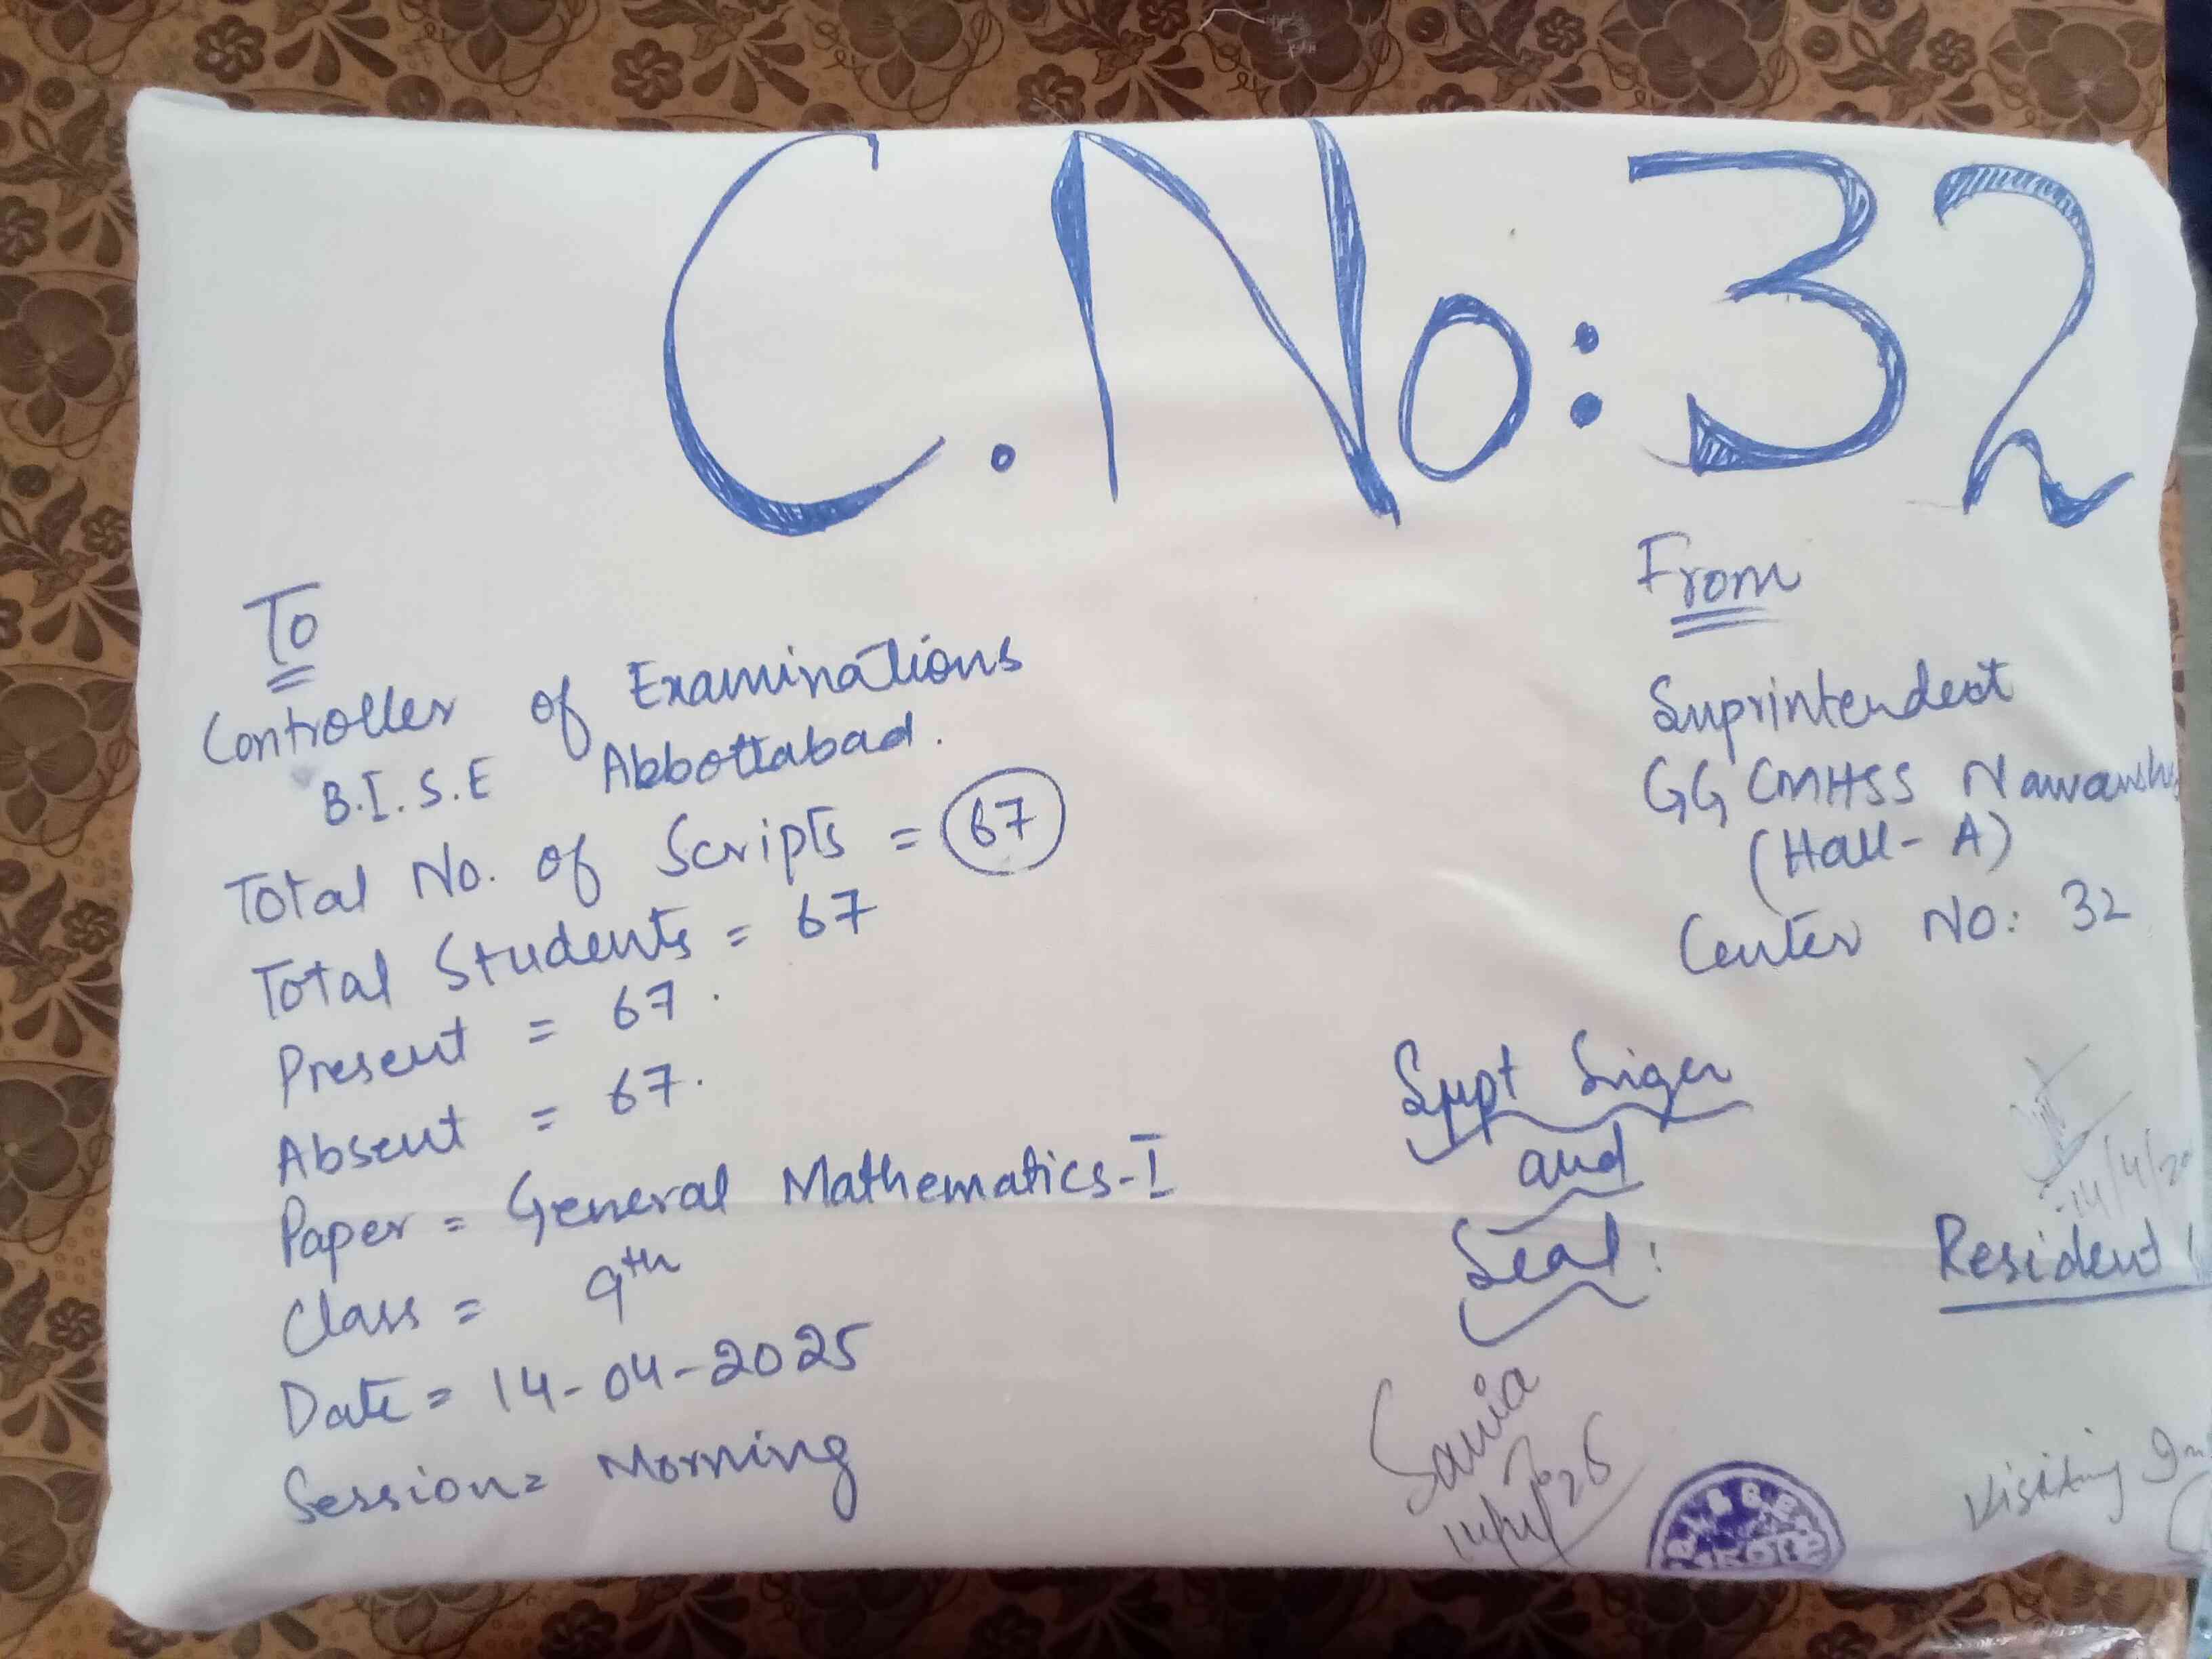 C.No:32
To
Controller of Examinations
B.I.S.E Abbottabad.
Total No. of Scripts = 67
Total Students = 67
Present = 67.
Absent = 67.
Paper = General Mathematics-I
Class = 9th
Date = 14-04-2025
Session = Morning
From
Suprintendent
GG CMHSS
(Hall-A)
Center No: 32
Supt Sign
and
Seal:
Sania
Resident
Visiting